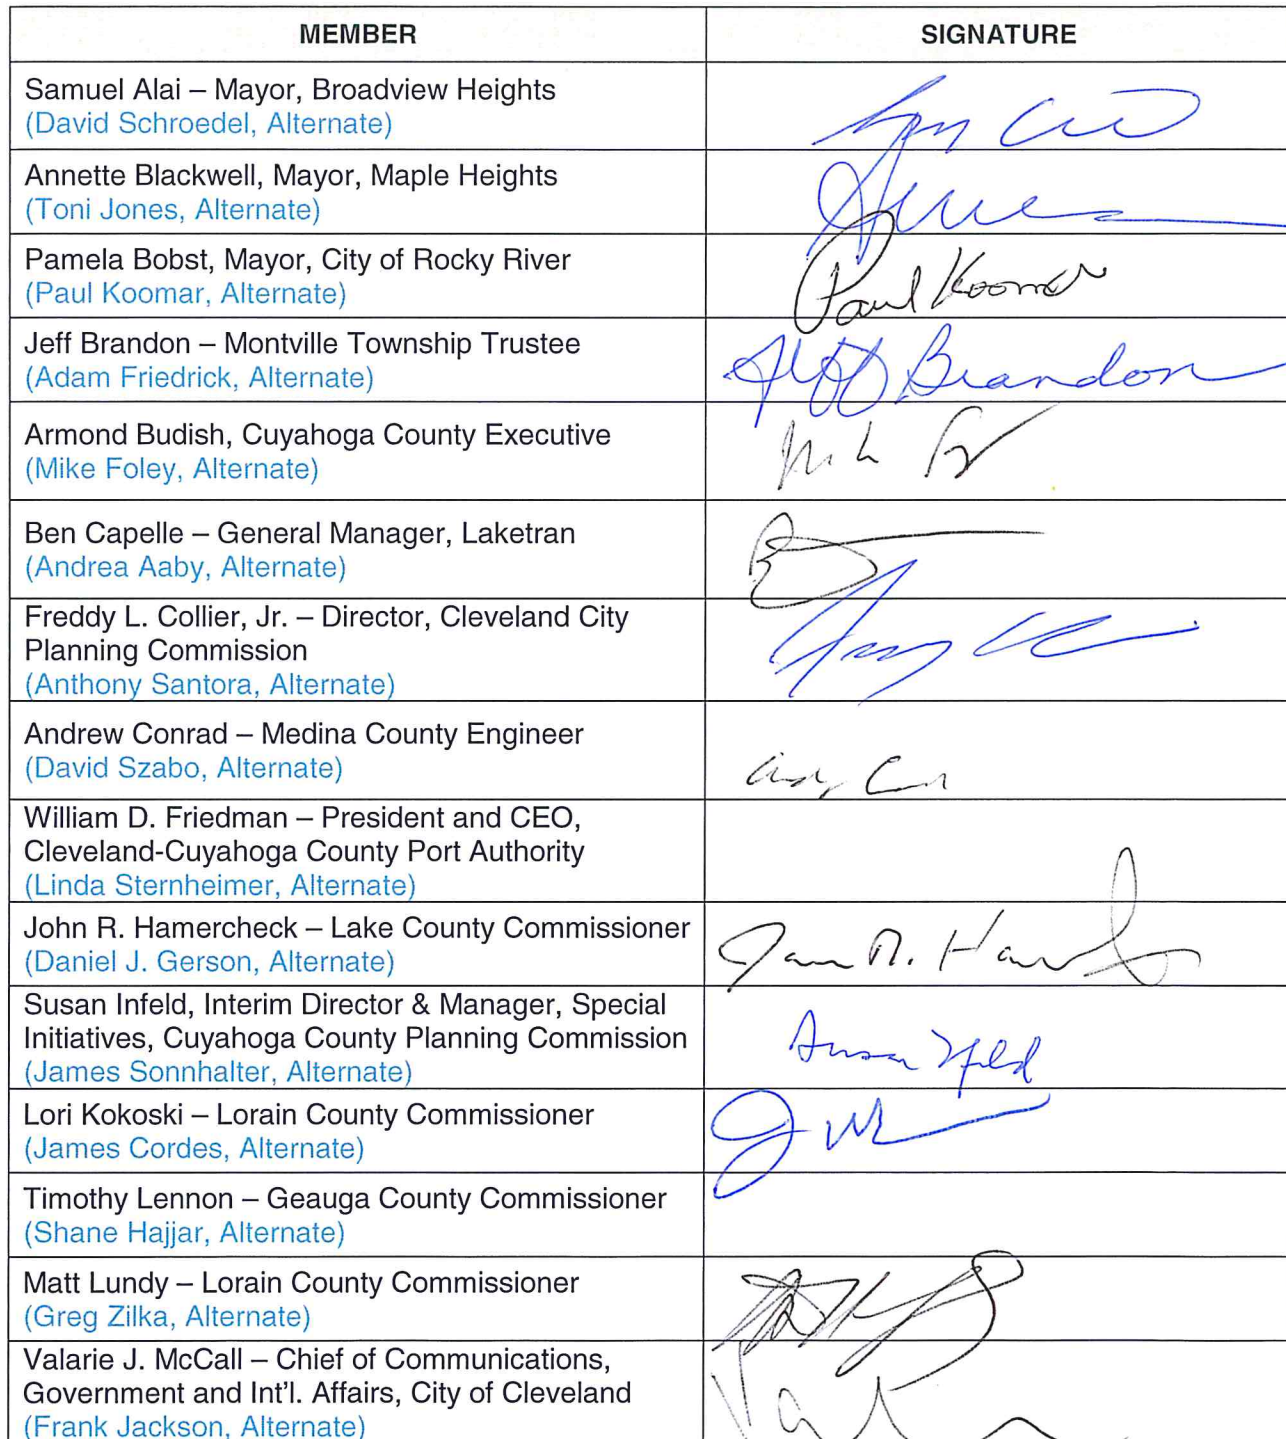 MEMBER SIGNATURE
Samuel Alai – Mayor, Broadview Heights
(David Schroedel, Alternate)
Annette Blackwell, Mayor, Maple Heights
(Toni Jones, Alternate)
Pamela Bobst, Mayor, City of Rocky River
(Paul Koomar, Alternate)
Paul Koomar
Jeff Brandon – Montville Township Trustee
(Adam Friedrick, Alternate)
Jeff Brandon
Armond Budish, Cuyahoga County Executive
(Mike Foley, Alternate)
Ben Capelle – General Manager, Laketran
(Andrea Aaby, Alternate)
Freddy L. Collier, Jr. – Director, Cleveland City
Planning Commission
(Anthony Santora, Alternate)
Andrew Conrad – Medina County Engineer
(David Szabo, Alternate)
William D. Friedman – President and CEO,
Cleveland-Cuyahoga County Port Authority
(Linda Sternheimer, Alternate)
John R. Hamercheck – Lake County Commissioner
(Daniel J. Gerson, Alternate)
Susan Infeld, Interim Director & Manager, Special
Initiatives, Cuyahoga County Planning Commission
(James Sonnhalter, Alternate)
Susan Infeld
Lori Kokoski – Lorain County Commissioner
(James Cordes, Alternate)
Timothy Lennon – Geauga County Commissioner
(Shane Hajjar, Alternate)
Matt Lundy – Lorain County Commissioner
(Greg Zilka, Alternate)
Valarie J. McCall – Chief of Communications,
Government and Int'l. Affairs, City of Cleveland
(Frank Jackson, Alternate)